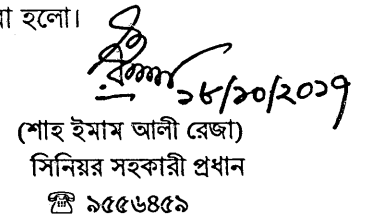 হলো।
১৮/১০/২০১৭
(শাহ ইমাম আলী রেজা)
সিনিয়র সহকারী প্রধান
☎ ৯৫৫৬৪৫৯